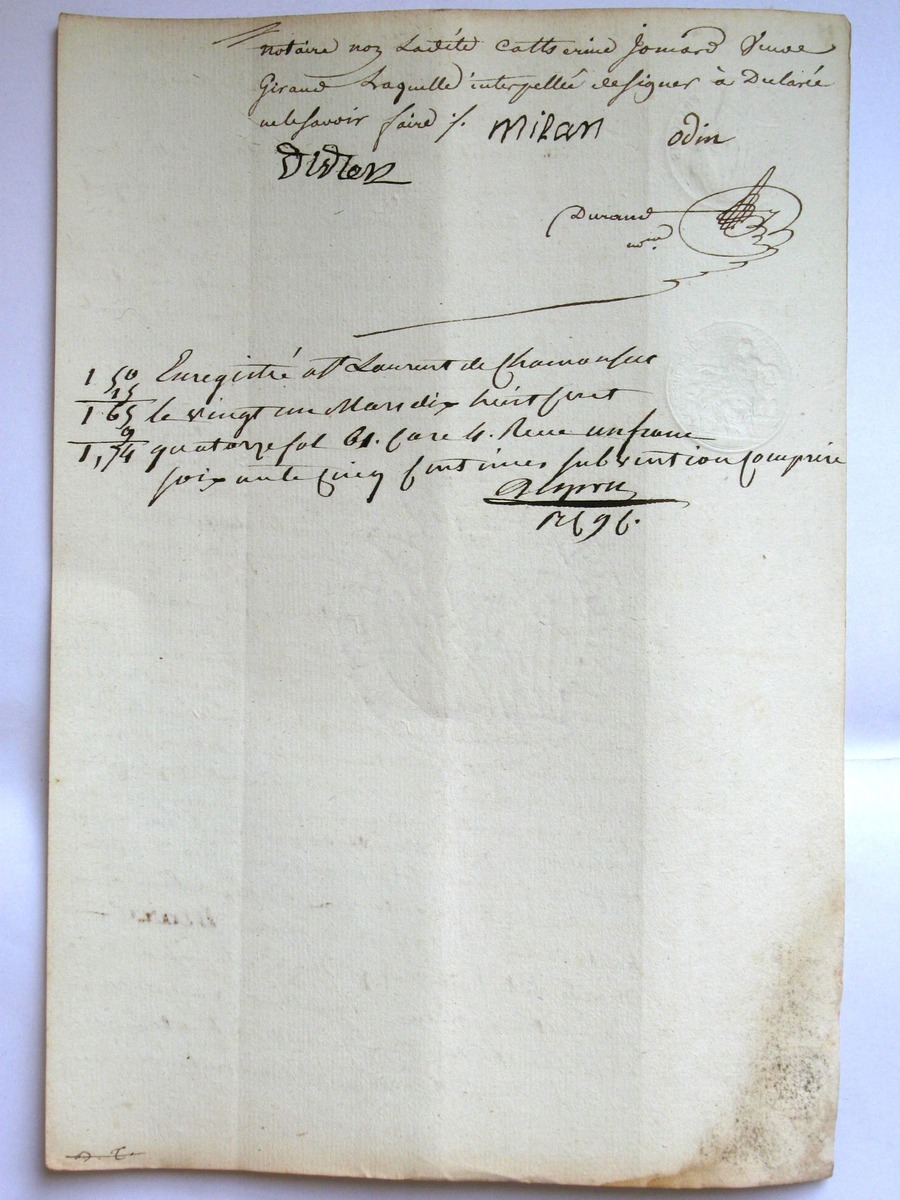 notaire non Ladite Catherine Jomard Veuve
Giraud Laquelle interpellée designer à Declarée
ne le savoir faire /.
Milan odin
Didier
Durand
no.re
Enregistré a St Laurent de Chamousset
le vingt un Mars dix huit cent
quatorze fol 61. Case 4. Reçu un franc
soixante cinq centimes subvention comprise
1 50
15
1 65
9
1,74